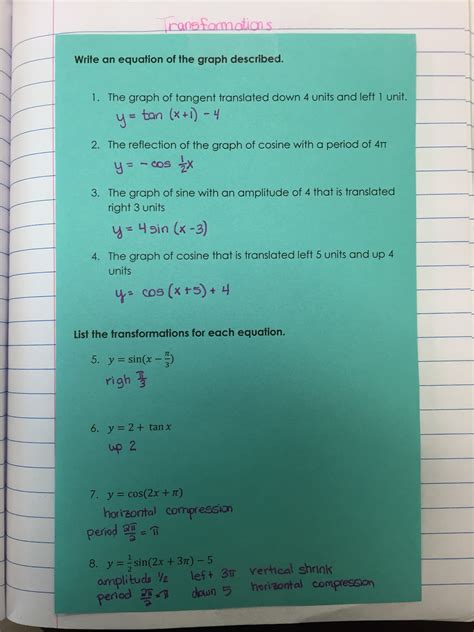 Transformations
Write an equation of the graph described.
1. The graph of tangent translated down 4 units and left 1 unit.
y = tan (x+1) - 4
2. The reflection of the graph of cosine with a period of 4π
y = - cos ½x
3. The graph of sine with an amplitude of 4 that is translated
right 3 units
y = 4 sin (x - 3)
4. The graph of cosine that is translated left 5 units and up 4
units
y = cos (x + 5) + 4
List the transformations for each equation.
5. y = sin(x − π/3)
righ π/3
6. y = 2 + tan x
up 2
7. y = cos(2x + π)
horizontal compression
period 2π/2 = π
8. y = ½ sin(2x + 3π) − 5
amplitude ½ left 3π vertical shrink
period 2π/2 = π down 5 horizontal compression